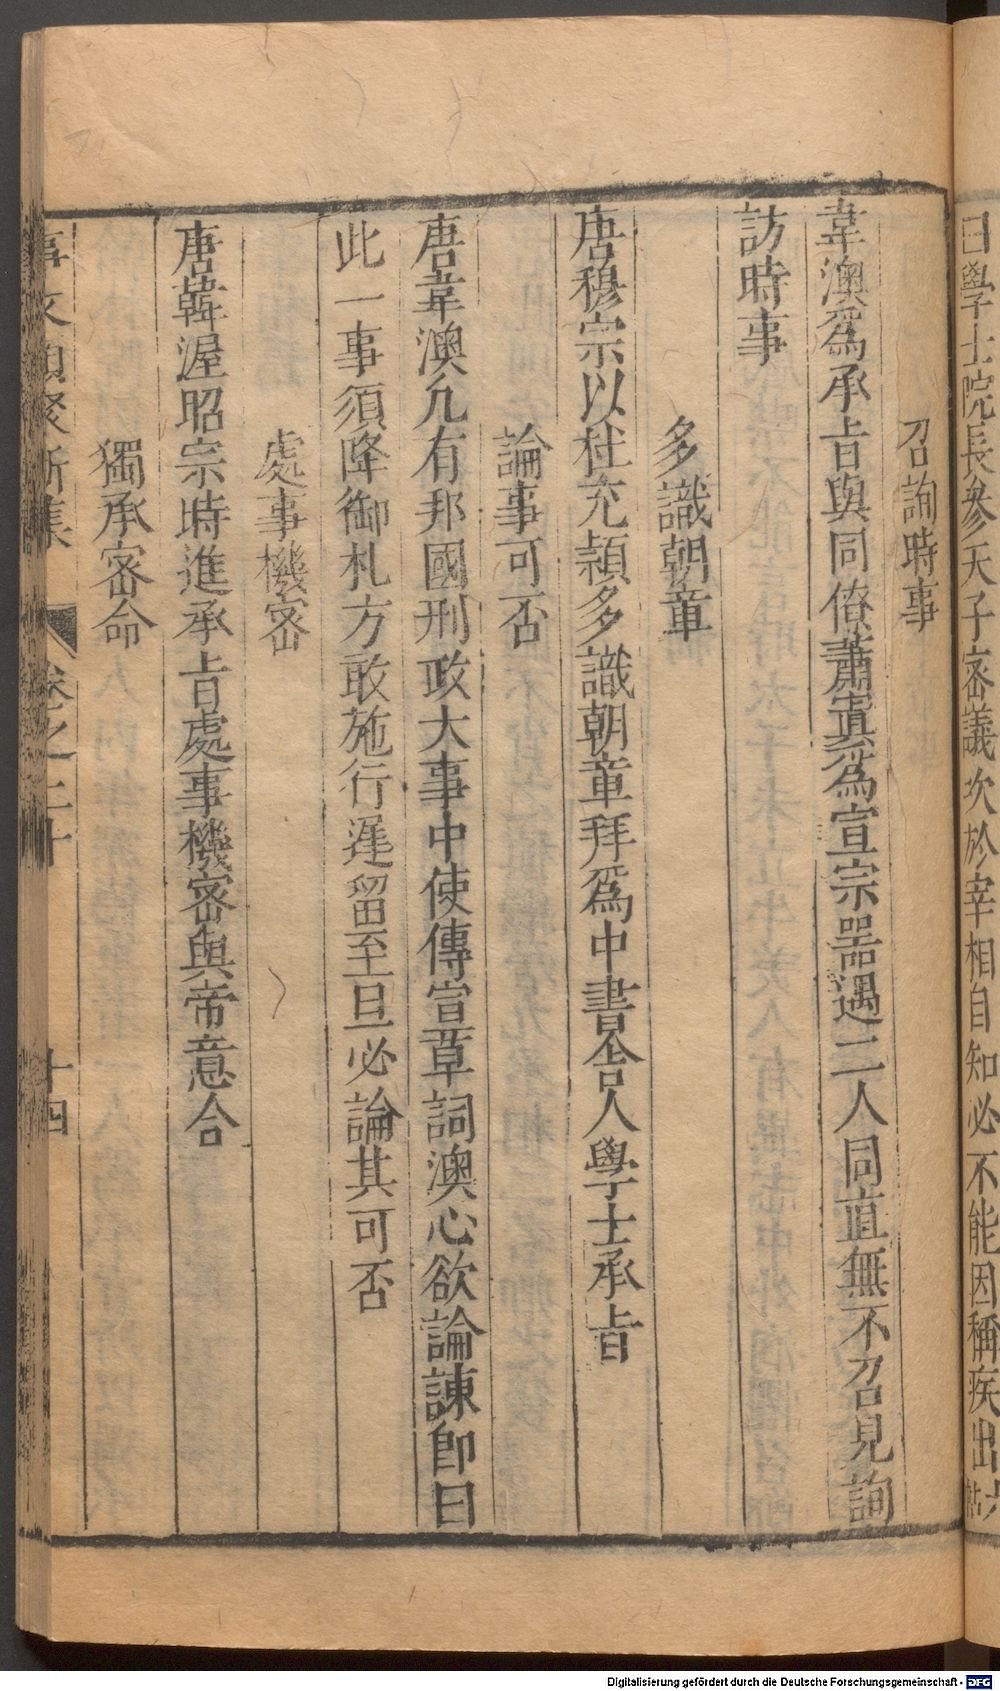 曰學士院長參天子密議次於宰相自知必不能因稱疾出
召詢時事
韋澳爲承旨與同僚蕭寘爲宣宗器遇二人同直無不召見詢
訪時事
多識朝章
唐穆宗以杜充頴多識朝章拜爲中書舍人學士承旨
論事可否
唐韋澳凡有邦國刑政大事中使傳宣草詞澳心欲論諫卽曰
此一事須降御札方敢施行遲留至旦必論其可否
處事機密
唐韓渥昭宗時進承旨處事機密與帝意合
獨承密命
事文類聚新集 卷之二十 十四
Digitalisierung gefördert durch die Deutsche Forschungsgemeinschaft - DFG